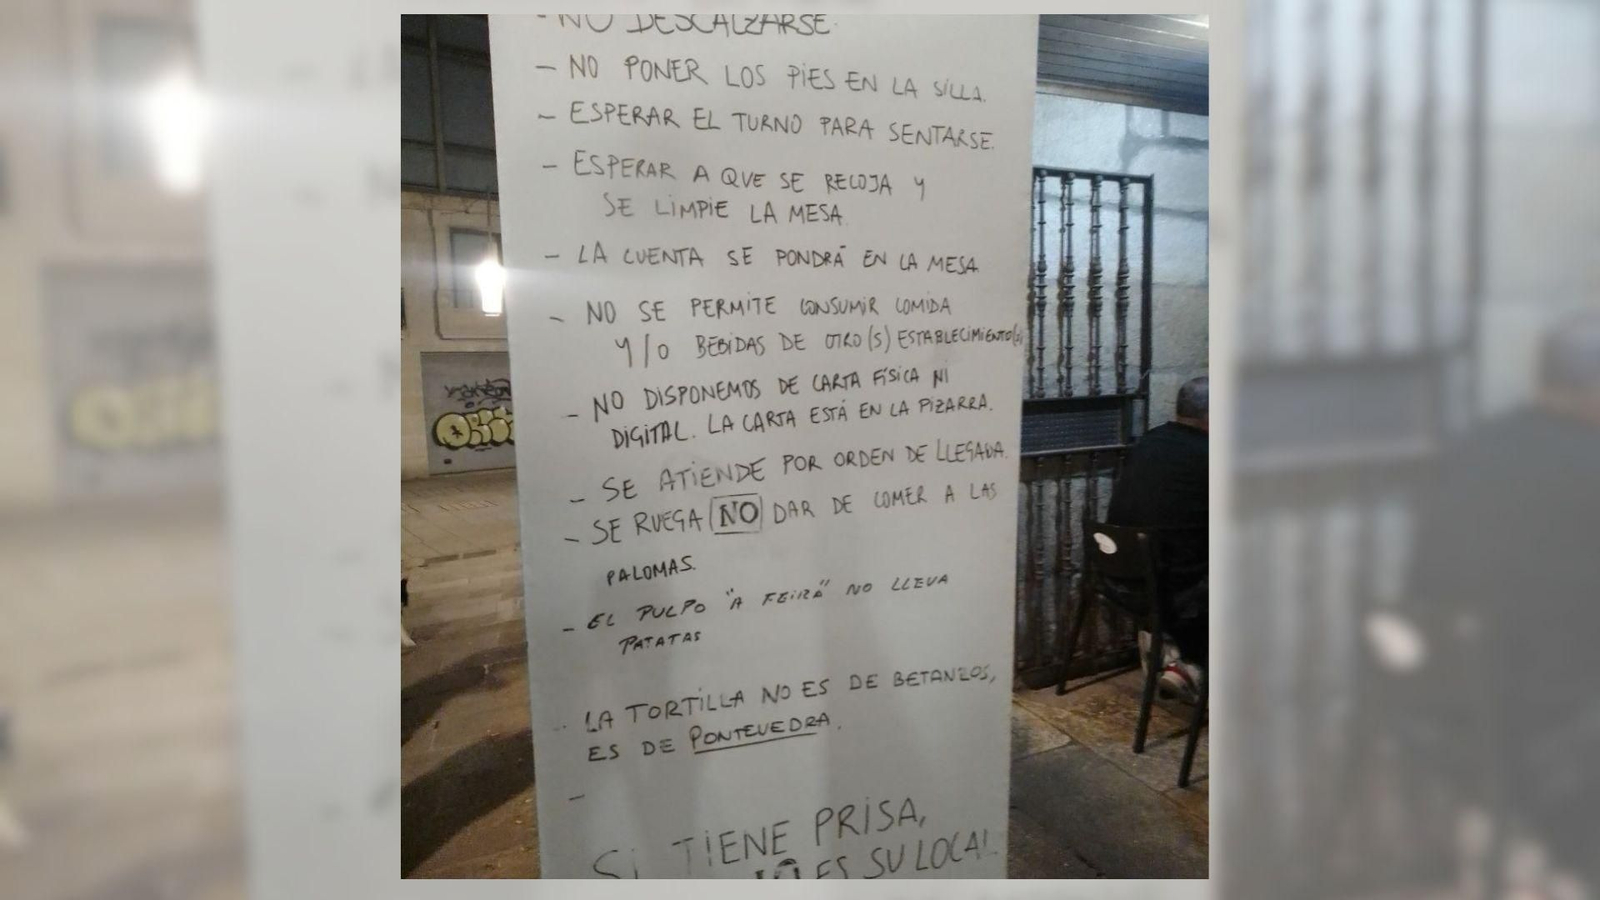 - NO DESCALZARSE.
- NO PONER LOS PIES EN LA SILLA.
- ESPERAR EL TURNO PARA SENTARSE.
- ESPERAR A QUE SE RECOJA Y
SE LIMPIE LA MESA.
- LA CUENTA SE PONDRÁ EN LA MESA
- NO SE PERMITE CONSUMIR COMIDA
Y/O BEBIDAS DE OTRO(S) ESTABLECIMIENTO(S)
- NO DISPONEMOS DE CARTA FÍSICA NI
DIGITAL. LA CARTA ESTÁ EN LA PIZARRA.
- SE ATIENDE POR ORDEN DE LLEGADA.
- SE RUEGA NO DAR DE COMER A LAS
PALOMAS.
- EL PULPO "A FEIRA" NO LLEVA
PATATAS
- LA TORTILLA NO ES DE BETANZOS,
ES DE PONTEVEDRA.
-
SI TIENE PRISA,
NO ES SU LOCAL